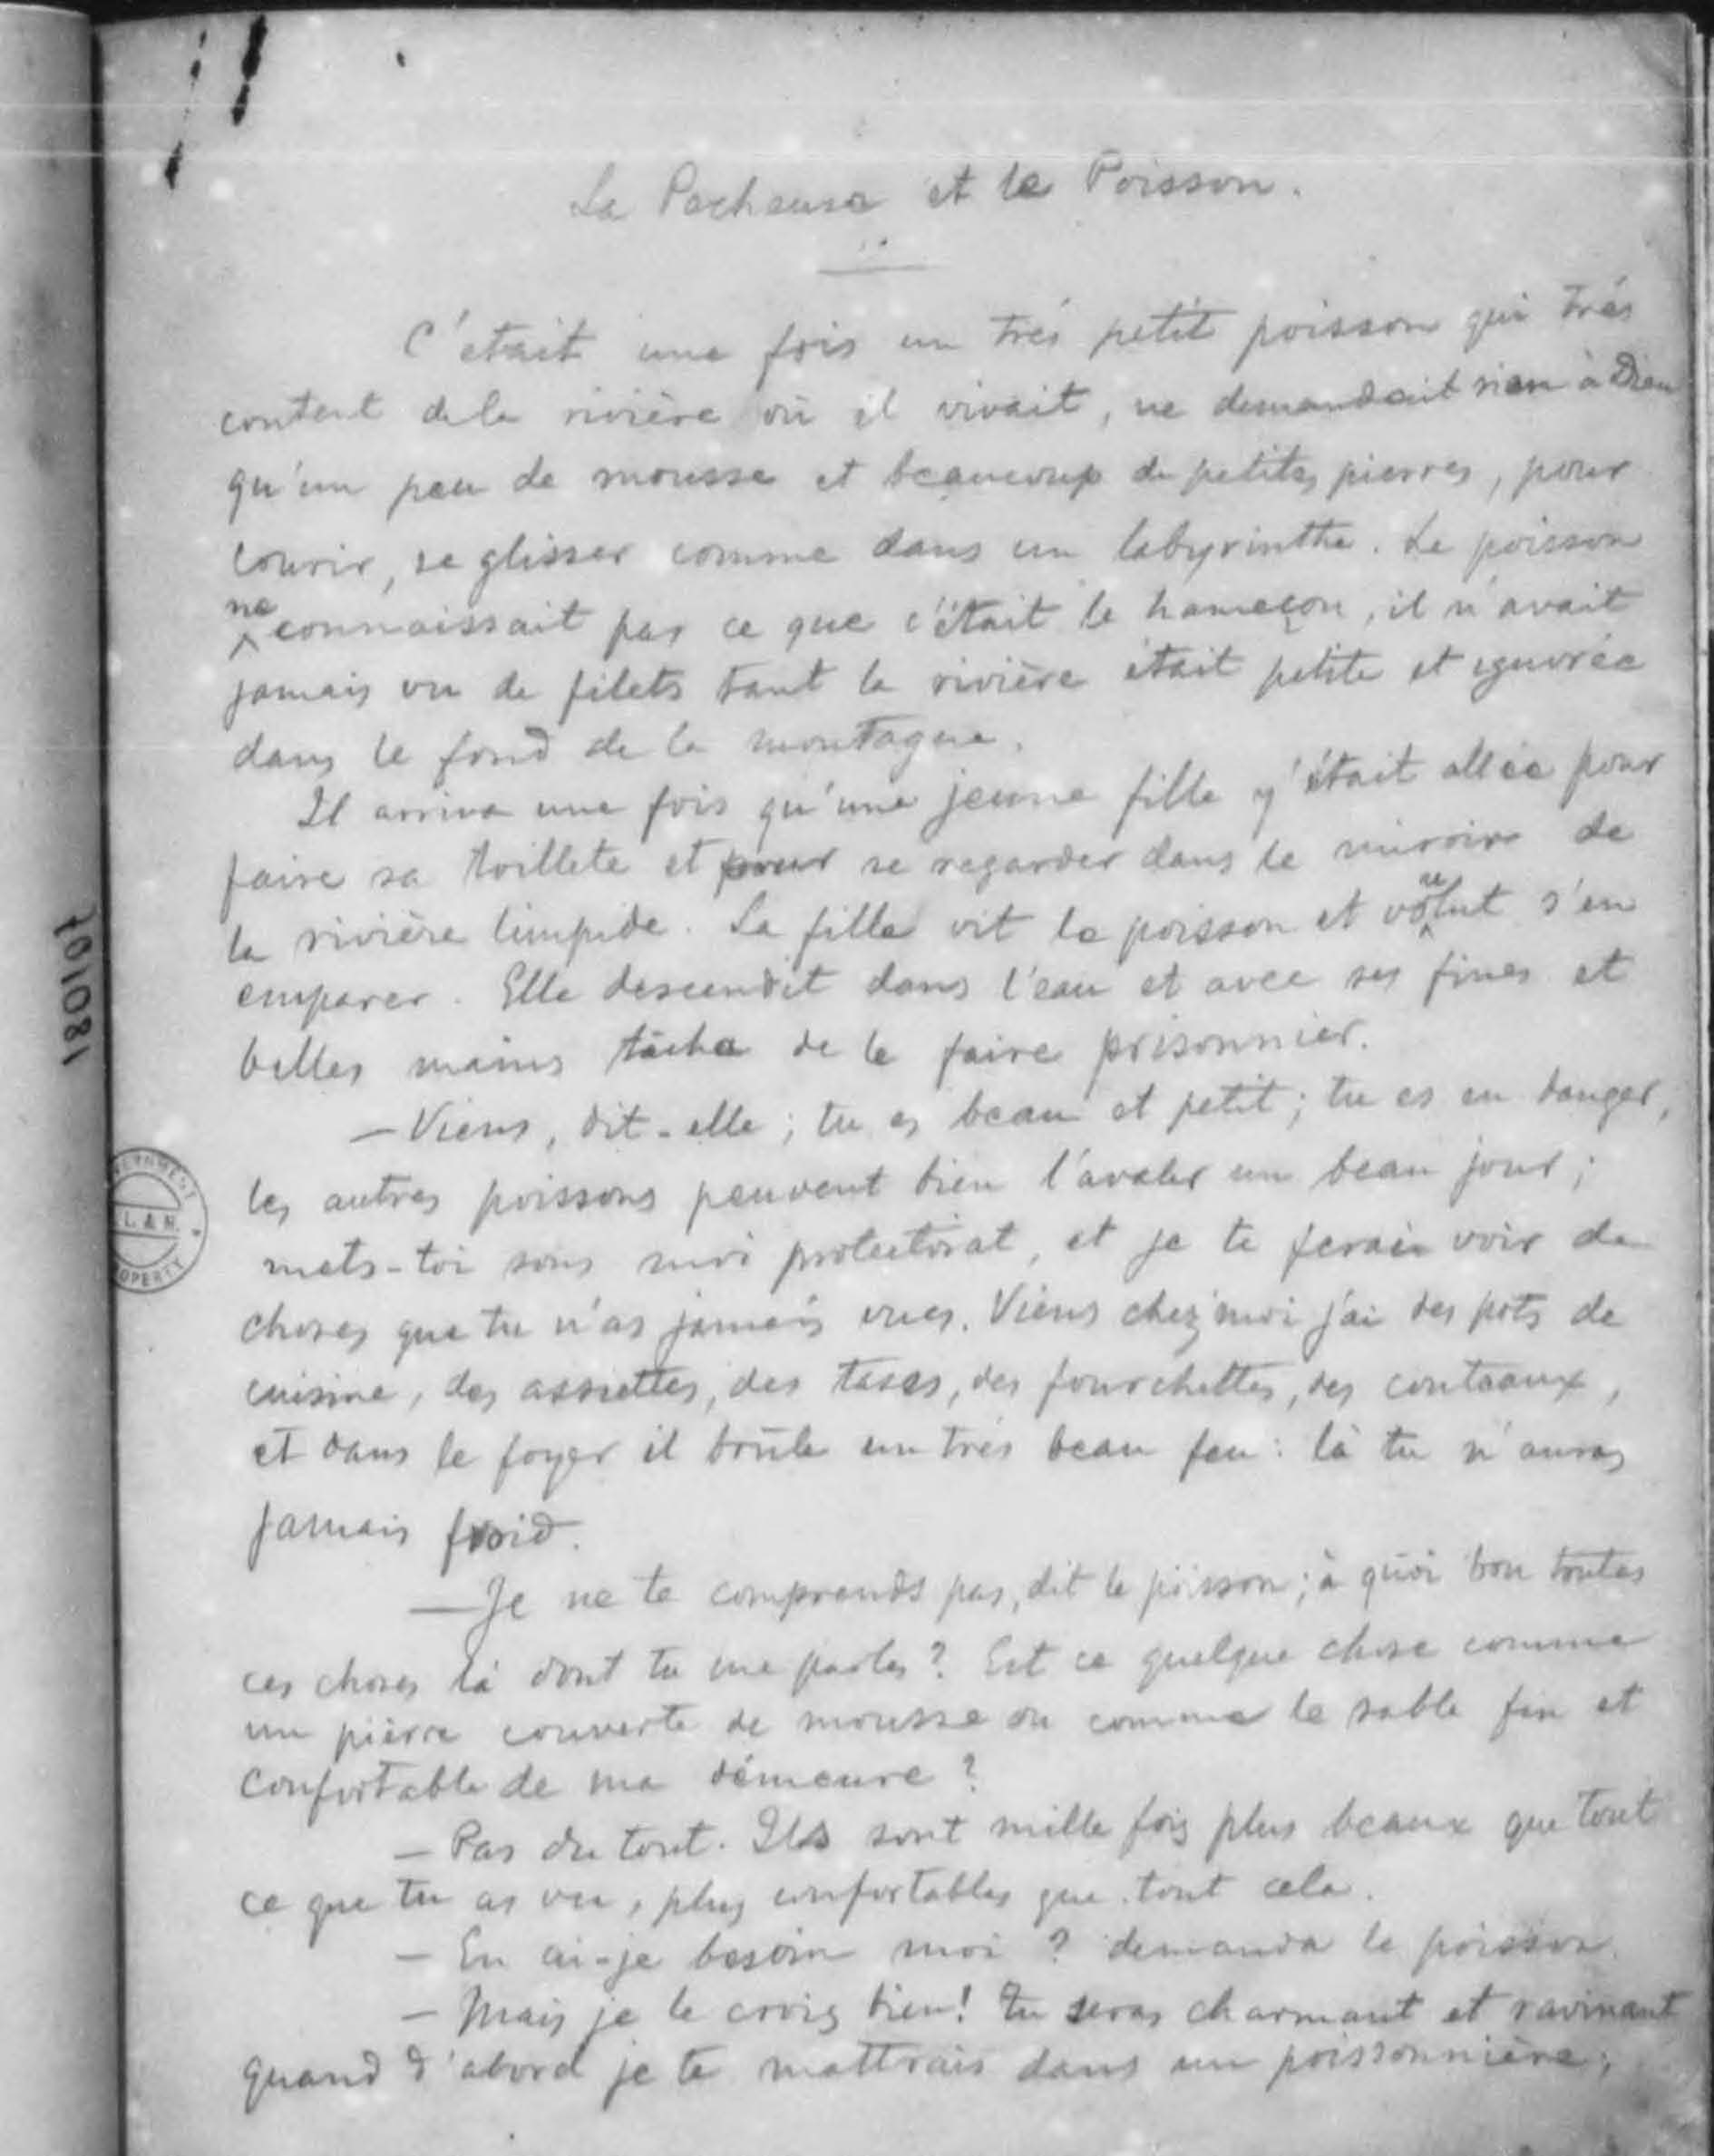 La Pecheuse et le Poisson.
C'etait une fois un trés petit poisson qui trés
content de la rivière où il vivait, ne demandait rien à Dieu
qu'un peu de mousse et beaucoup de petites pierres, pour
courir, se glisser comme dans un labyrinthe. Le poisson
ne connaissait pas ce que c'était le hameçon, il n'avait
jamais vu de filets tant la rivière était petite et ignorée
dans le fond de la montagne.
Il arriva une fois qu'une jeune fille y était allée pour
faire sa toillete et pour se regarder dans le mirroir de
la rivière limpide. La fille vit le poisson et voulut s'en
emparer. Elle descendit dans l'eau et avec ses fines et
belles mains tâcha de le faire prisonnier.
— Viens, dit-elle; tu es beau et petit; tu es en danger,
les autres poissons peuvent bien t'avaler un beau jour;
mets-toi sous moi protectorat, et je te ferais voir de
choses que tu n'as jamais vues. Viens chez moi j'ai des pots de
cuisine, des assiettes, des tases, des fourchettes, des couteaux,
et dans le foyer il brûle un trés beau feu: là tu n'auras
jamais froid.
— Je ne te comprends pas, dit le poisson; à quoi bon toutes
ces choses là dont tu me parles? Est ce quelque chose comme
un pierre couverte de mousse ou comme le sable fin et
confortable de ma démeure?
— Pas du tout. Ils sont mille fois plus beaux que tout
ce que tu as vu, plus confortables que tout cela.
— En ai-je besoin moi? demanda le poisson.
— Mais je le crois bien! tu seras charmant et ravinant
quand d'abord je te mettrais dans un poissonnière;
18107
L. & H.
PROPERTY